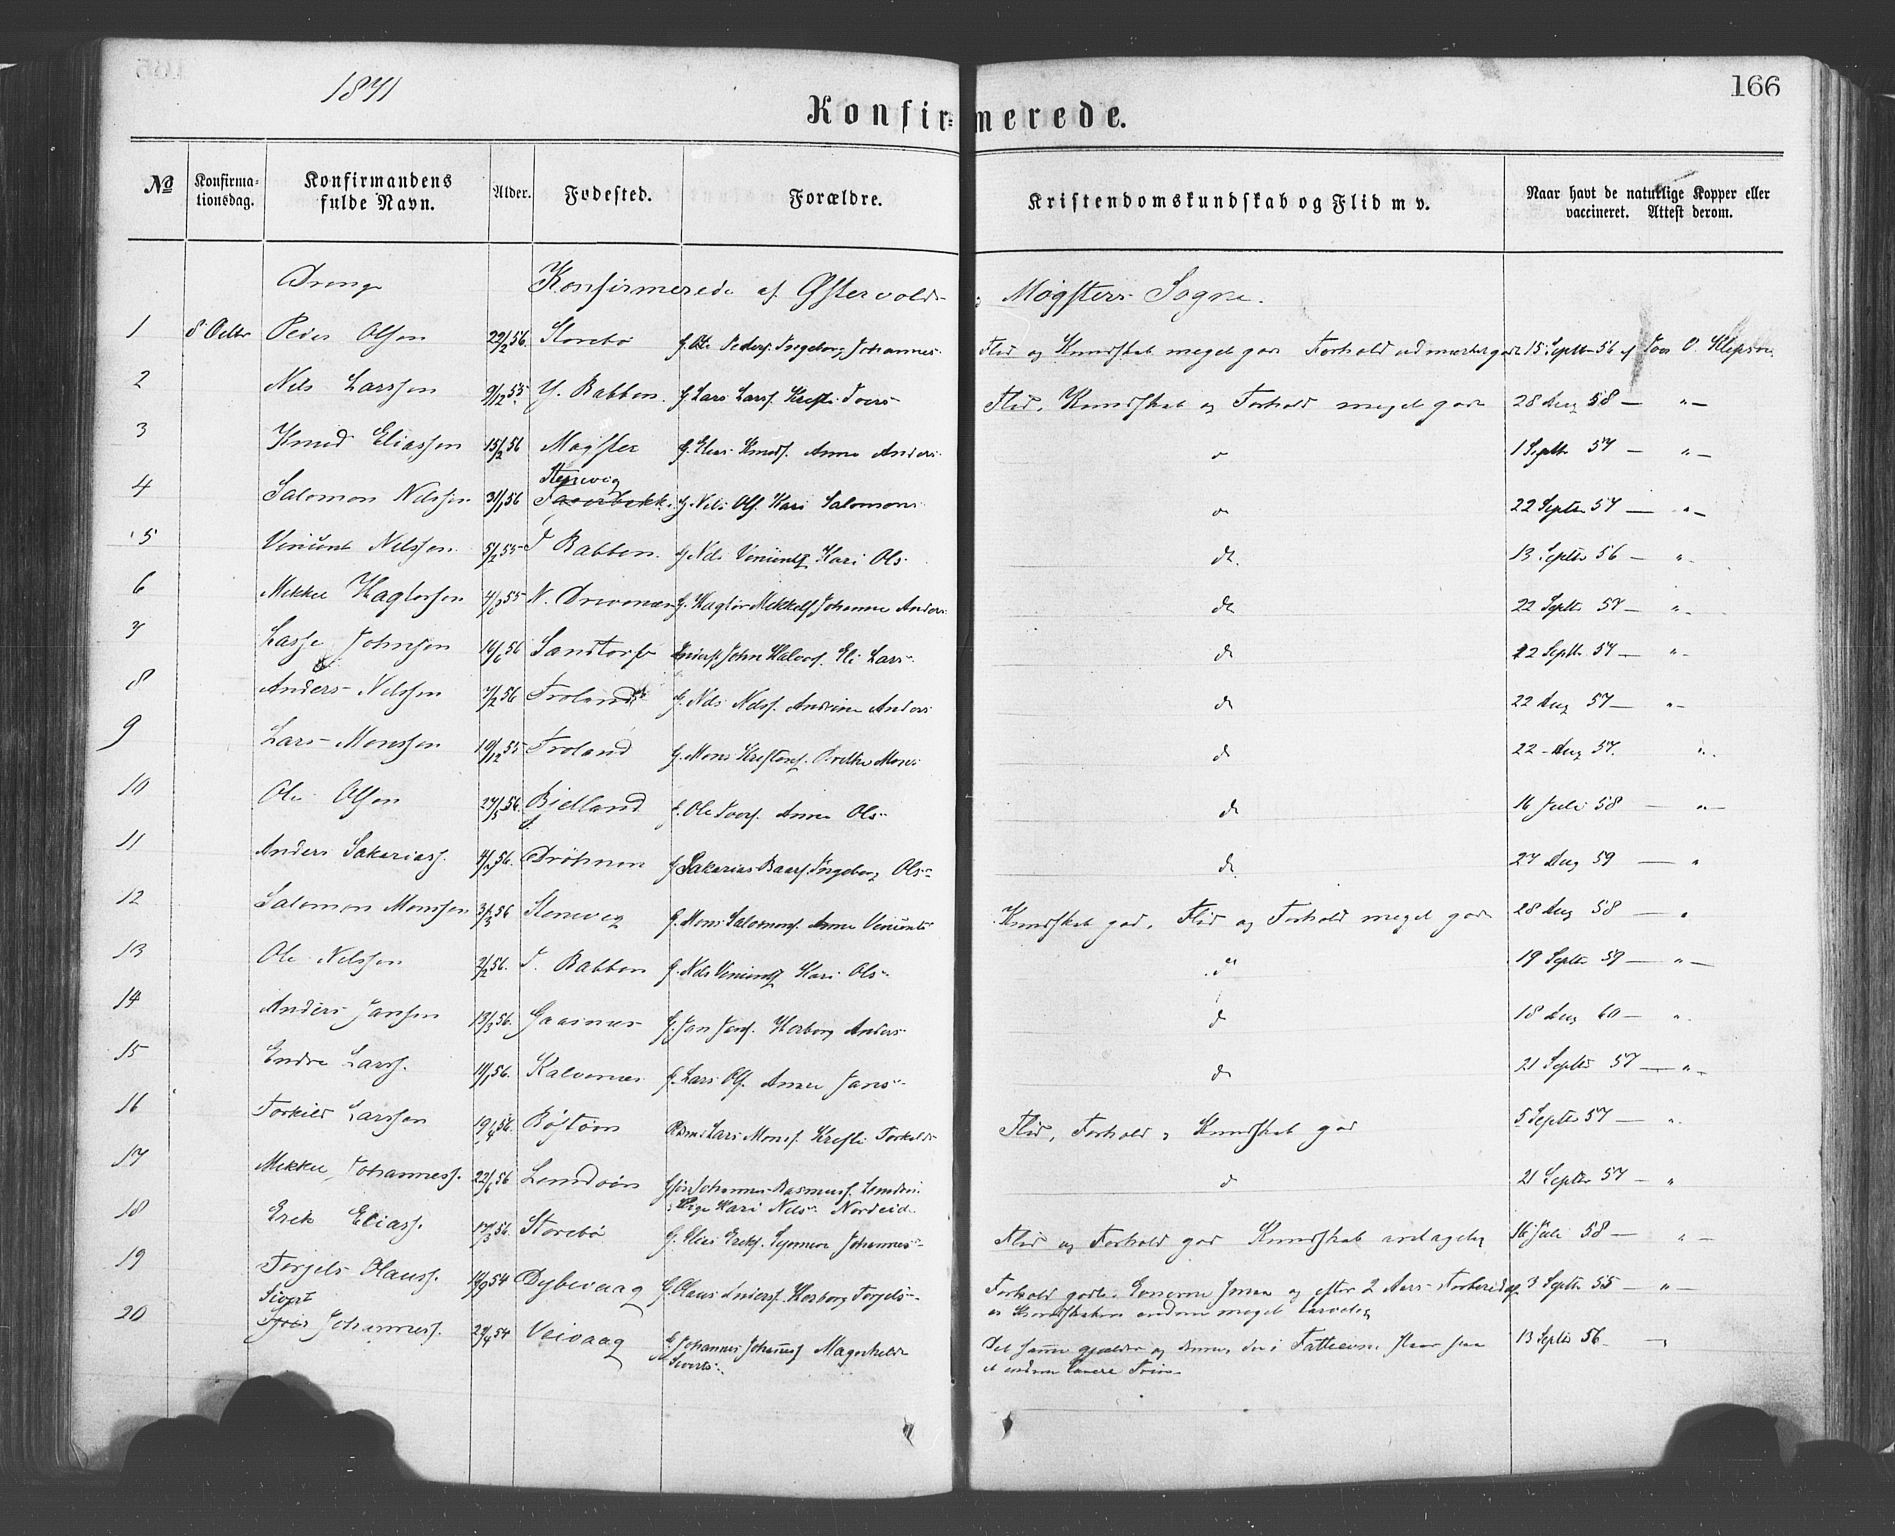 1871
166
Konfirmerede.
No Konfirmationsdag. Konfirmandens fulde Navn. Alder. Fødested. Forældre. Kristendomskundskab og Flid m v. Naar havt de naturlige Kopper eller vaccineret. Attest derom.
Drenge Konfirmerede af Østervolds Møgsters Sogne.
1 8 Octbr Peder Olsen 29/2 56. Storebø G. Ole Peders. Ingeborg Johannes- Flid og Kundskab meget god Forhold udmærket godt 15 Septbr 56 af Joos O. Klepsv.
2 Nils Larssen 9/12 55. Y. Bakken. G. Lars Larss. Kristi Joers- Flid, Kundskab og Forhold meget god 28 Aug 58 — " —
3 Knud Eliassen 15/2 56 Møgster G. Elias Knuds. Anna Anders- 1 Septb 57 — " —
Stenevig
4 Salomon Nilssen 31/1 56 G. Nils Ols. Kari Salomons- 22 Septbr 57 — " —
5 Vincent Nilssen 5/2 55 I. Bakken. G. Nils Vincents. Kari Ols- do. 13 Septbr 56 — "
6 Mikkel Hagtorsen 55 N. Drivenæs G. Hagtor Mikkels. Johanne Anders- do 22 Septb 57 — " -
7 Lasse Johnsen 16/6 56 Sandtorv John Halvors. Eli Lars- d 22 Septb 57 — " -
8 Anders Nilssen 7/2 56 Troland G. Nils Nilss. Andrine Anders d 22 Aug 57 — " -
9 Lars Monssen 10/12 55 Troland G. Mons Kristens. Brithe Mons- d 22 - Aug 57. "
10 Ole Olsen 27/5 56. Bjelland G. Ole Joers. Anna Ols- d 16 Juli 58 — " -
11 Anders Sakarias. 4/3 56. Drøsnen G. Sakarias Baars. Ingeborg Ols- d 27 Aug 59 — "
12 Salomon Monssen 31/3 56 Stenevig G. Mons Salomons. Anna Vincents- Kundskab god, Flid og Forhold meget god 28 Aug 58 — "
13 Ole Nilssen 2/2 56. I. Bakken G. Nils Vincents. Kari Ols- do 19 Septbr 59 — " —
14 Anders Jansen 13/3 56. Gaasnes G. Jan Jans. Herborg Anders- d 18 Aug 60 — "
15 Endre Larss. 11/1 56. Kalvenes G. Lars Ols. Anna Jans- d 21 Septbr 57 — " -
16 Torkild Larssen 19/4 56. Røstøen Lars Mons. Kristi Torkilds- Flid, Forhold og Kundskab god 5 Septbr 57 — "
17 Mikkel Johanness. 22/6 56 Lunnøen Johannes Rasmuss. Lunnøen
Pige Kari Nils- Nordeide d 21 Septbr 57 — "
18 Erik Eliass. 17/3 56. Storebø G. Elias Eriks. Synneva Johannes- Flid og Forhold god Kundskab antagelig 16 Juli 58 — " —
19 Torjels Olauss. 18/9 54 Dybevaag G. Olaus Anders. Herborg Torjels- Forhold godt. Evnerne smaa og efter 2 Aars Forberedelse 3 Septbr 55 — " —
er Kundskaben endnu meget tarvelig
Sivert
20 Johanness. 29/4 54 Veivaag G. Johannes Johanness. Magnhilde
Siverts- Det samme gjælder og denne, der i Fatteevne staar paa 13 Septbr 56 — "
et endnu lavere Trin-